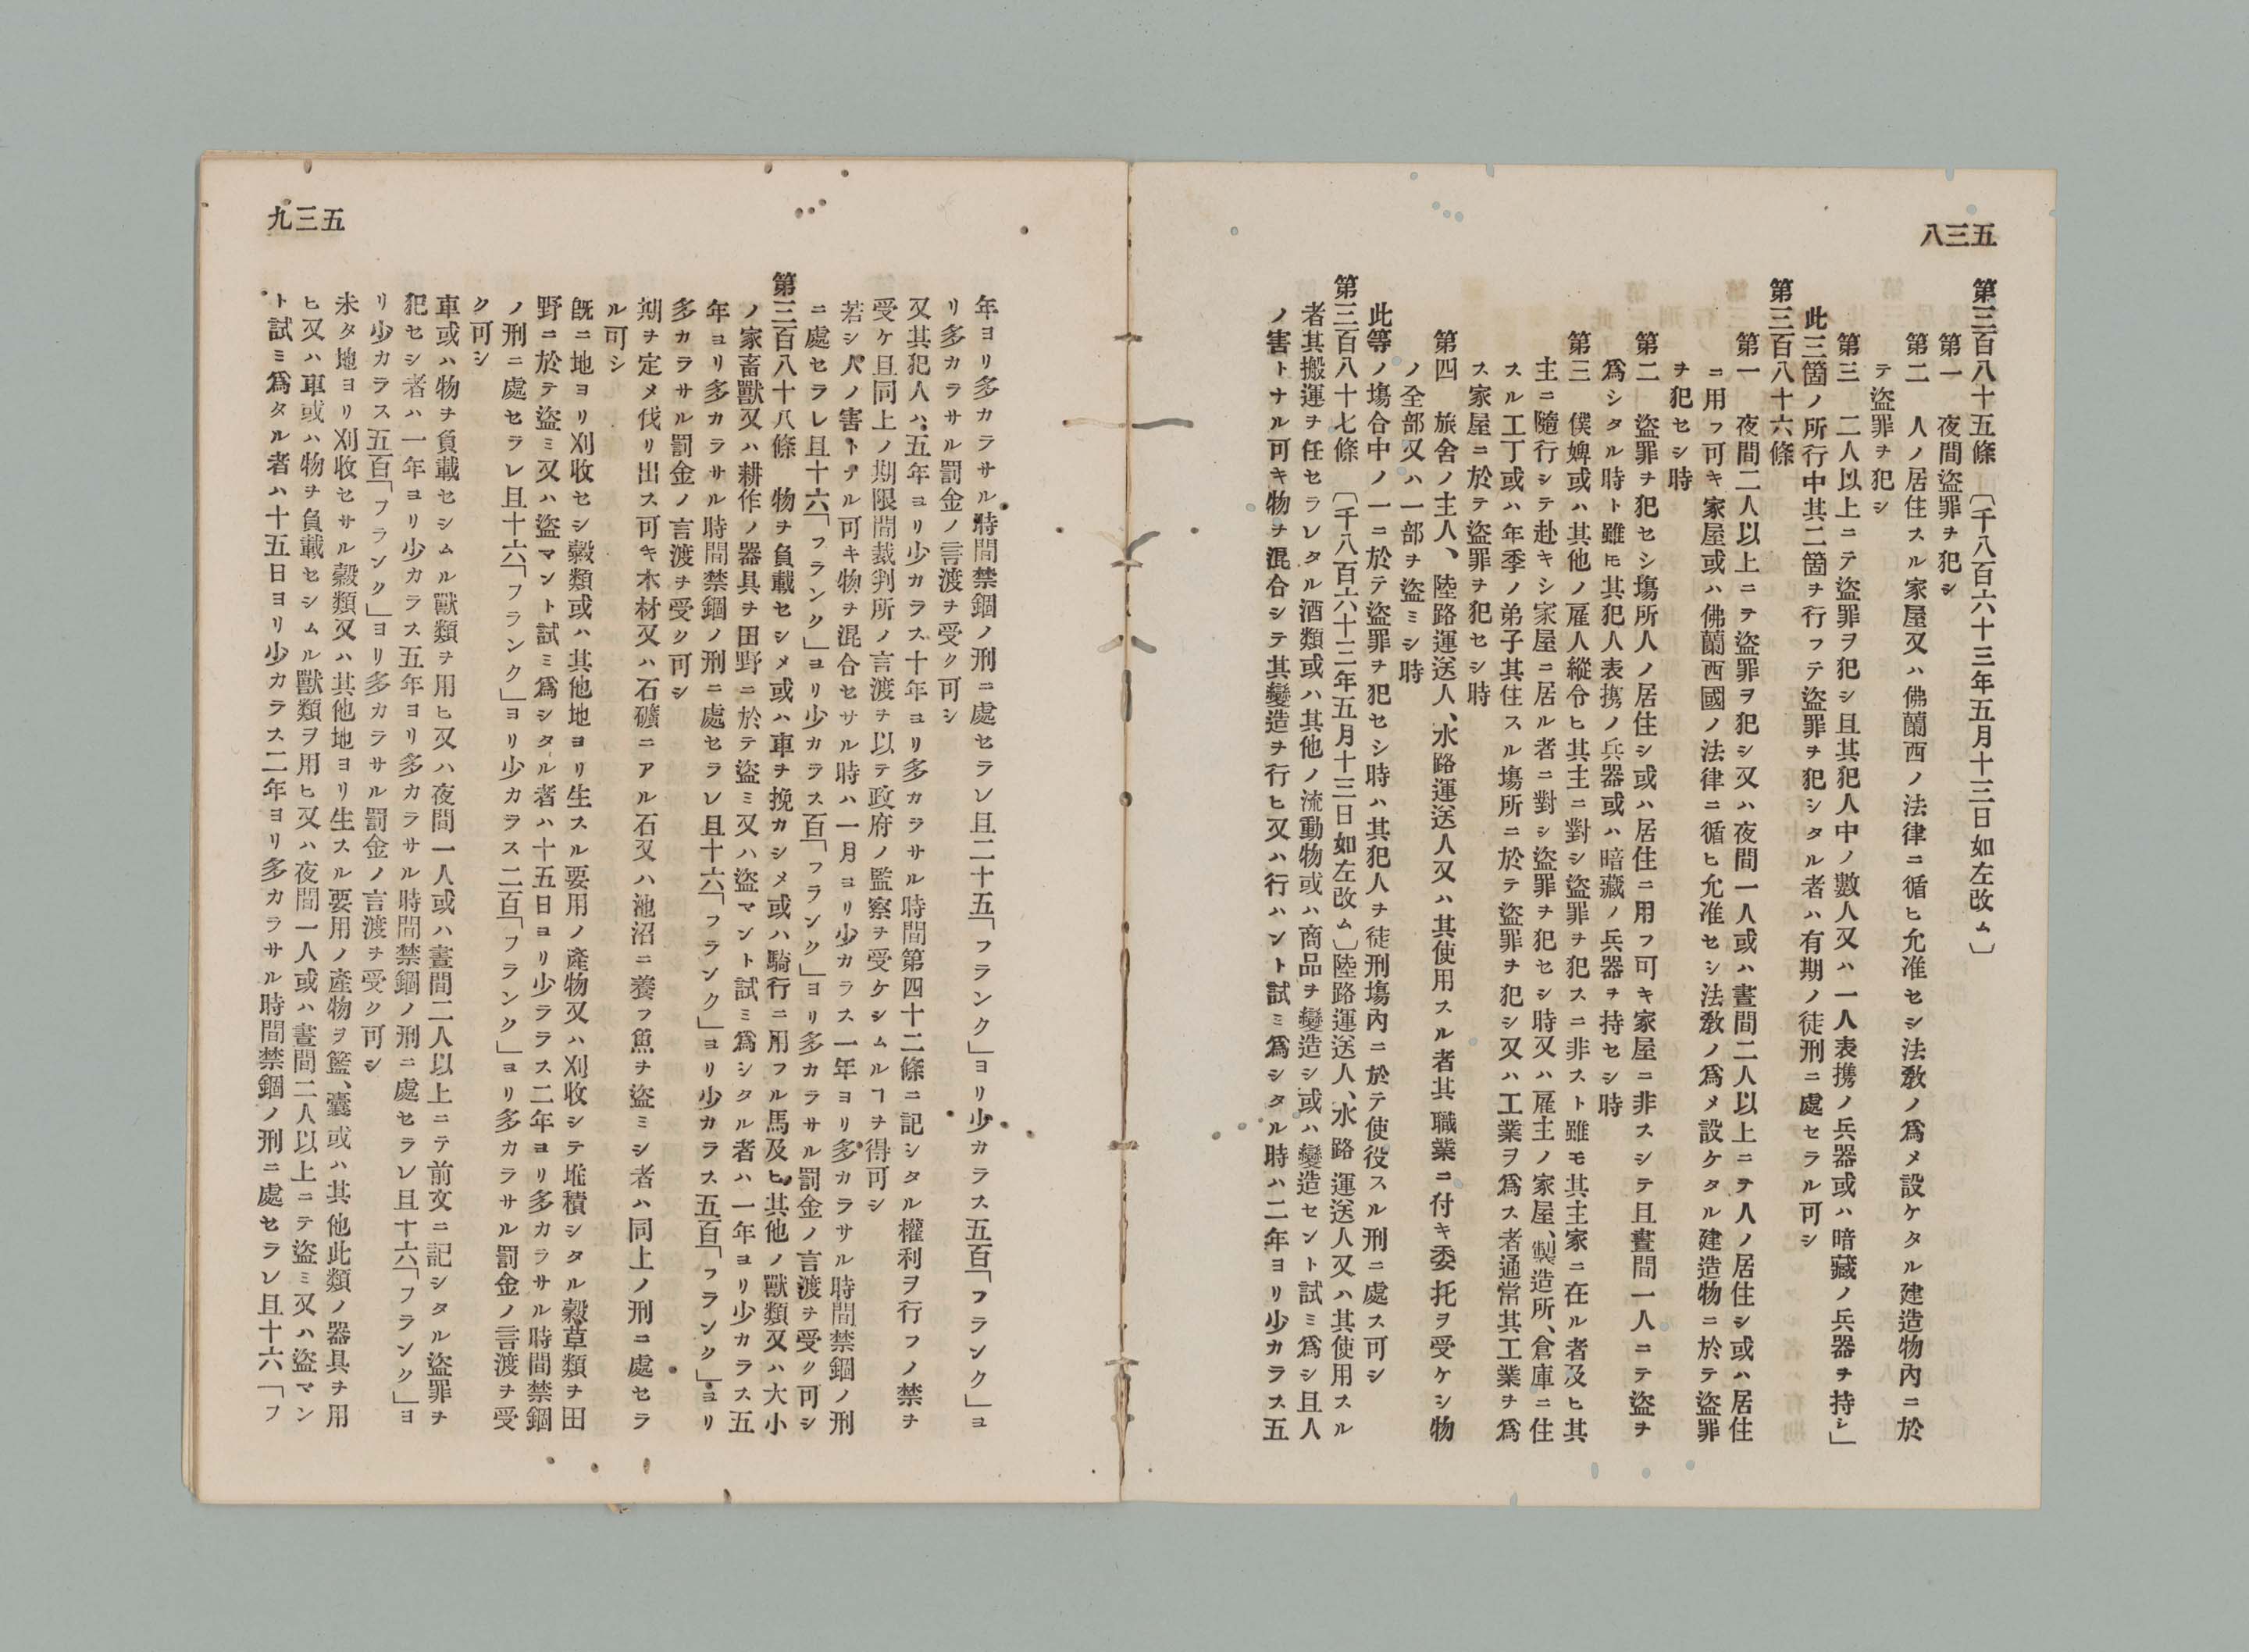 八三五
第三百八十五條　〔千八百六十三年五月十三日如左改ム〕
第一　夜間盜罪ヲ犯シ
第二　人ノ居住スル家屋又ハ佛蘭西ノ法律ニ循ヒ允准セシ法敎ノ爲メ設ケタル建造物內ニ於
テ盜罪ヲ犯シ
第三　二人以上ニテ盜罪ヲ犯シ且其犯人中ノ數人又ハ一人表携ノ兵器或ハ暗藏ノ兵器ヲ持シ」
此三箇ノ所行中其二箇ヲ行フテ盜罪ヲ犯シタル者ハ有期ノ徒刑ニ處セラル可シ
第三百八十六條
第一　夜間二人以上ニテ盜罪ヲ犯シ又ハ夜間一人或ハ晝間二人以上ニテ人ノ居住シ或ハ居住
ニ用フ可キ家屋或ハ佛蘭西國ノ法律ニ循ヒ允准セシ法敎ノ爲メ設ケタル建造物ニ於テ盜罪
ヲ犯セシ時
第二　盜罪ヲ犯セシ塲所人ノ居住シ或ハ居住ニ用フ可キ家屋ニ非スシテ且晝間一人ニテ盜ヲ
爲シタル時ト雖𪜈其犯人表携ノ兵器或ハ暗藏ノ兵器ヲ持セシ時
第三　僕婢或ハ其他ノ雇人縱令ヒ其主ニ對シ盜罪ヲ犯スニ非スト雖モ其主家ニ在ル者及ヒ其
主ニ隨行シテ赴キシ家屋ニ居ル者ニ對シ盜罪ヲ犯セシ時又ハ雇主ノ家屋、製造所、倉庫ニ住
スル工丁或ハ年季ノ弟子其住スル塲所ニ於テ盜罪ヲ犯シ又ハ工業ヲ爲ス者通常其工業ヲ爲
ス家屋ニ於テ盜罪ヲ犯セシ時
第四　旅舍ノ主人、陸路運送人、水路運送人又ハ其使用スル者其職業ニ付キ委托ヲ受ケシ物
ノ全部又ハ一部ヲ盜ミシ時
此等ノ塲合中ノ一ニ於テ盜罪ヲ犯セシ時ハ其犯人ヲ徒刑塲內ニ於テ使役スル刑ニ處ス可シ
第三百八十七條　〔千八百六十三年五月十三日如左改ム〕陸路運送人、水路運送人又ハ其使用スル
者其搬運ヲ任セラレタル酒類或ハ其他ノ流動物或ハ商品ヲ變造シ或ハ變造セント試ミ爲シ且人
ノ害トナル可キ物ヲ混合シテ其變造ヲ行ヒ又ハ行ハント試ミ爲シタル時ハ二年ヨリ少カラス五
九三五
年ヨリ多カラサル時間禁錮ノ刑ニ處セラレ且二十五「フランク」ヨリ少カラス五百「フランク」ヨ
リ多カラサル罰金ノ言渡ヲ受ク可シ
又其犯人ハ五年ヨリ少カラス十年ヨリ多カラサル時間第四十二條ニ記シタル權利ヲ行フノ禁ヲ
受ケ且同上ノ期限間裁判所ノ言渡ヲ以テ政府ノ監察ヲ受ケシムルヿヲ得可シ
若シ人ノ害トナル可キ物ヲ混合セサル時ハ一月ヨリ少カラス一年ヨリ多カラサル時間禁錮ノ刑
ニ處セラレ且十六「フランク」ヨリ少カラス百「フランク」ヨリ多カラサル罰金ノ言渡ヲ受ク可シ
第三百八十八條　物ヲ負載セシメ或ハ車ヲ挽カシメ或ハ騎行ニ用フル馬及ヒ其他ノ獸類又ハ大小
ノ家畜獸又ハ耕作ノ器具ヲ田野ニ於テ盜ミ又ハ盜マント試ミ爲シタル者ハ一年ヨリ少カラス五
年ヨリ多カラサル時間禁錮ノ刑ニ處セラレ且十六「フランク」ヨリ少カラス五百「フランク」ヨリ
多カラサル罰金ノ言渡ヲ受ク可シ
期ヲ定メ伐リ出ス可キ木材又ハ石礦ニアル石又ハ池沼ニ養フ魚ヲ盜ミシ者ハ同上ノ刑ニ處セラ
ル可シ
旣ニ地ヨリ刈收セシ穀類或ハ其他地ヨリ生スル要用ノ產物又ハ刈收シテ堆積シタル穀草類ヲ田
野ニ於テ盜ミ又ハ盜マント試ミ爲シタル者ハ十五日ヨリ少ララス二年ヨリ多カラサル時間禁錮
ノ刑ニ處セラレ且十六「フランク」ヨリ少カラス二百「フランク」ヨリ多カラサル罰金ノ言渡ヲ受
ク可シ
車或ハ物ヲ負載セシムル獸類ヲ用ヒ又ハ夜間一人或ハ晝間二人以上ニテ前文ニ記シタル盜罪ヲ
犯セシ者ハ一年ヨリ少カラス五年ヨリ多カラサル時間禁錮ノ刑ニ處セラレ且十六「フランク」ヨ
リ少カラス五百「フランク」ヨリ多カラサル罰金ノ言渡ヲ受ク可シ
未タ地ヨリ刈收セサル穀類又ハ其他地ヨリ生スル要用ノ產物ヲ籃、囊或ハ其他此類ノ器具ヲ用
ヒ又ハ車或ハ物ヲ負載セシムル獸類ヲ用ヒ又ハ夜間一人或ハ晝間二人以上ニテ盜ミ又ハ盜マン
ト試ミ爲タル者ハ十五日ヨリ少カラス二年ヨリ多カラサル時間禁錮ノ刑ニ處セラレ且十六「フ